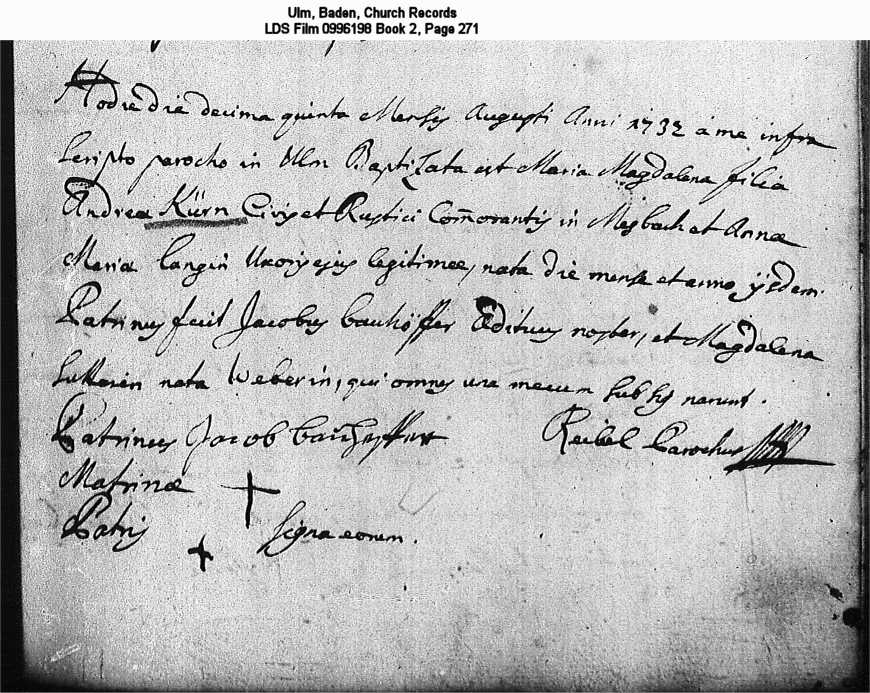 Ulm, Baden, Church Records
LDS Film 0996198 Book 2, Page 271
Hodie die decima quinta Mensis Augusti Anni 1732 a me infra
scripto parocho in Ulm Baptizata est Maria Magdalena filia
Andreæ Kürn Civis et Rustici Com̄orantis in Mesbach et Annæ
Mariæ Langin Uxoris ejus legitimæ, nata die mense et anno ijsdem.
Patrinus fuit Jacobus bauhöffer Ædituus noster, et Magdalena
nata Weberin, qui omnes una mecum subsignarunt.
Patrinus Jacob
Reibel Parochus
Matrinæ +
Patris + signa eorum.